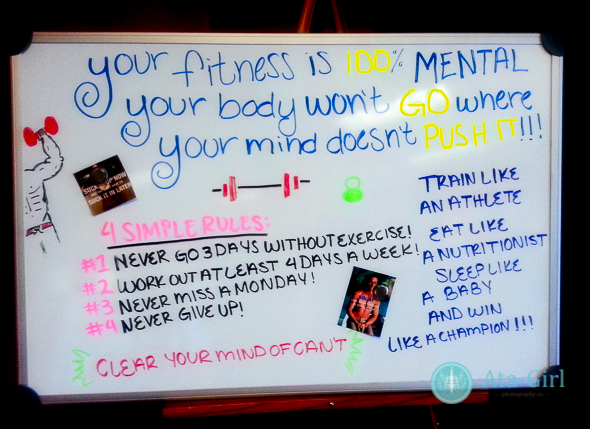 your fitness is 100% MENTAL
your body won't GO where
your mind doesn't PUSH IT!!!
SUCK IT UP NOW
SUCK IT IN LATER
4 SIMPLE RULES:
#1 NEVER GO 3 DAYS WITHOUT EXERCISE!
#2 WORK OUT AT LEAST 4 DAYS A WEEK!
#3 NEVER MISS A MONDAY!
#4 NEVER GIVE UP!
CLEAR YOUR MIND OF CAN'T
TRAIN LIKE
AN ATHLETE
EAT LIKE
A NUTRITIONIST
SLEEP LIKE
A BABY
AND WIN
LIKE A CHAMPION!!!
Ata-Girl
photography co.